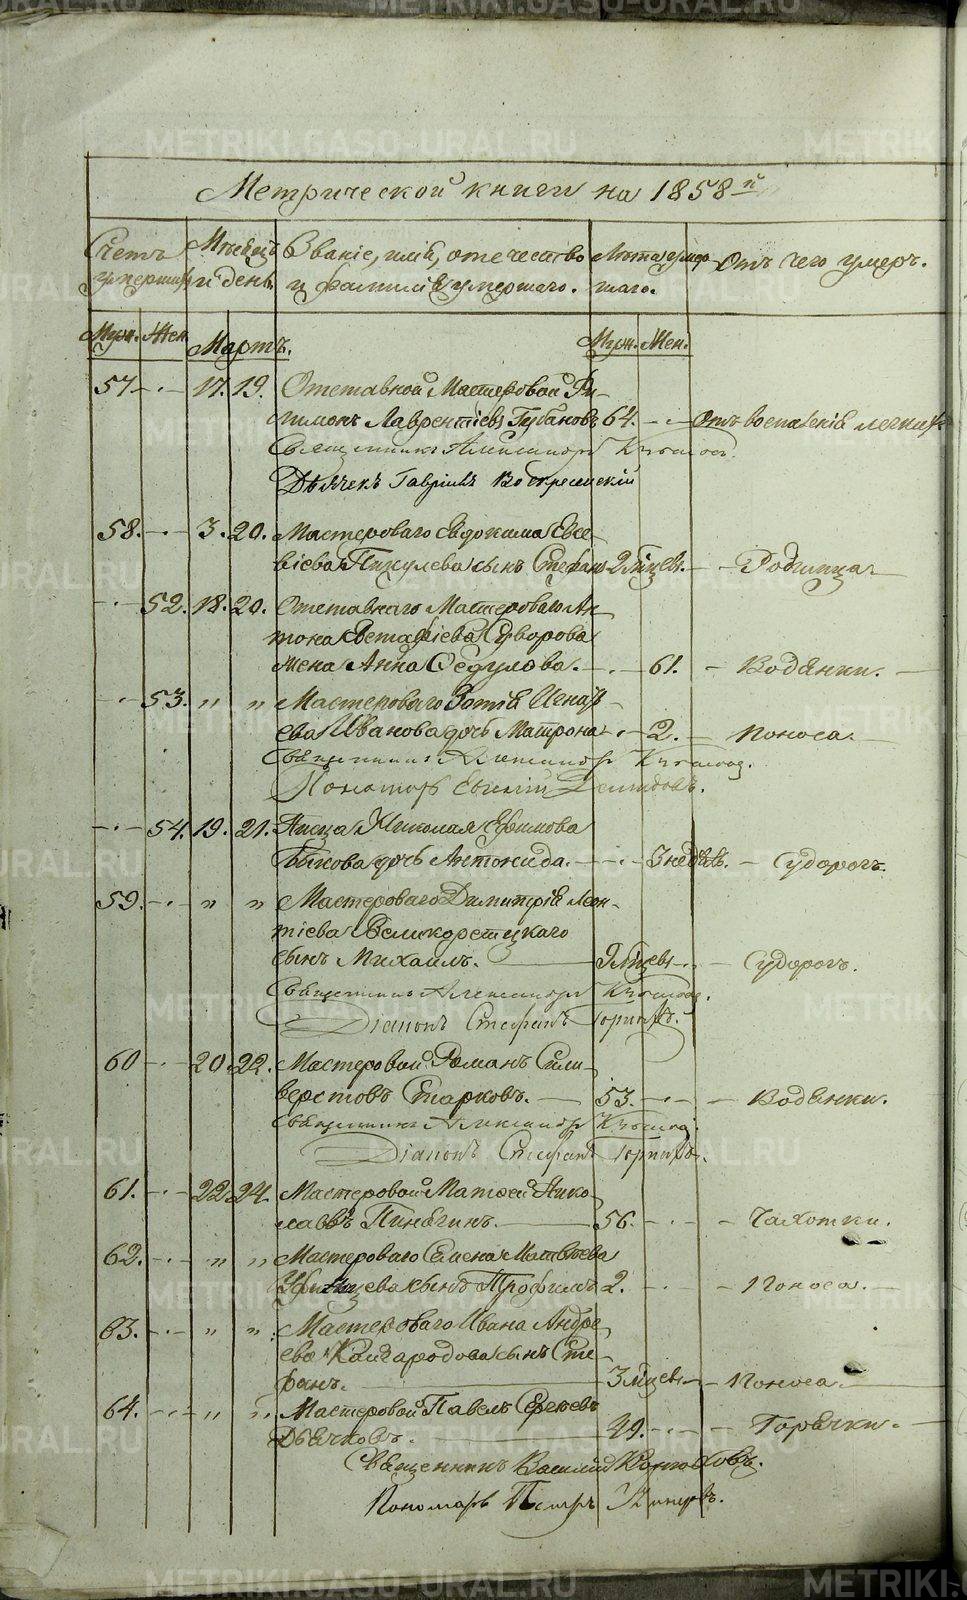 METRIKI.GASO-URAL.RU
Метрической книги на 1858й
Счетъ умершихъ Мѣсяцъ и день Званіе, имя, отечество и фамилія умершаго. Лѣта умершаго. Отъ чего умеръ.
Муж. Жен. Мартъ. Муж. Жен.
57 17. 19. Отставной Мастеровой Фи-
лимонъ Лаврентіевъ Губановъ 64. Отъ воспаленія легкихъ
Священникъ Александръ
Дьячекъ Гавріилъ Воскресенскій
58. 3. 20. Мастероваго Евдокима Евсе-
віева сынъ Стефанъ 2 мѣсцев. Родимца
52. 18. 20. Отставнаго Мастероваго Ан-
тона Евстафіева Суворова
жена Анна Ѳедулова. 61. Водянки.
53. " " Мастероваго Зотія Игнать-
ева Иванова дочь Матрона 2. Поноса.
Священникъ Александръ
Пономарь Евгеній Демидовъ.
54. 19. 21. Писца Николая Ефимова
Быкова дочь Антонида. 3 недѣль. Судорогъ.
59. " " Мастероваго Димитрія Леон-
тіева Великорецкаго
сынъ Михаилъ. 9 мѣсцев Судорогъ.
Священникъ Александръ
Діаконъ Стефанъ
60 20. 22. Мастеровой Романъ Сили-
верстовъ Старковъ. 53. Водянки.
Священникъ Александръ
Діаконъ Стефанъ
61. 22. 24. Мастеровой Матѳей Нико-
лаевъ Пинягинъ. 56. Чахотки.
62. " " Мастероваго Семена Матвѣева
сынъ Трофимъ 2. Поноса.
63. " " Мастероваго Ивана Андре-
ева Кайгородова сынъ Сте-
фанъ. 3 мѣсцев Поноса.
64. " " Мастеровой Павелъ Сергѣевъ
Дьячковъ. 49. Горячки.
Священникъ Василій
Пономарь Петръ